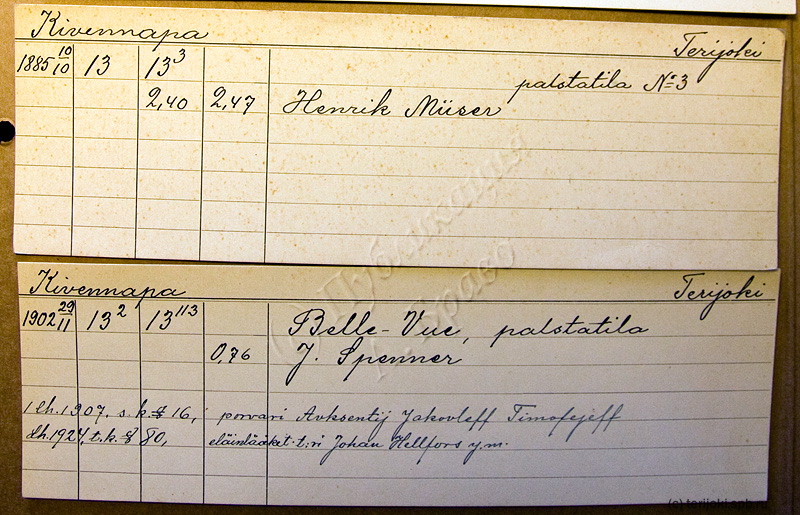 Kivennapa Terijoki
1885 10/10 13 13³ palstatila № 3
2,40 2,47 Henrik Müser
Kivennapa Terijoki
1902 29/11 13² 13¹¹³ Belle-Vue, palstatila
0,76 J. Spenner
1 lh. 1907. s. k. § 16, porvari Avksentij Jakovleff Timofejeff
lh. 1924, t. k. § 80, eläinlääket. t:ri Johan Hellfors y.m.
© Публикация